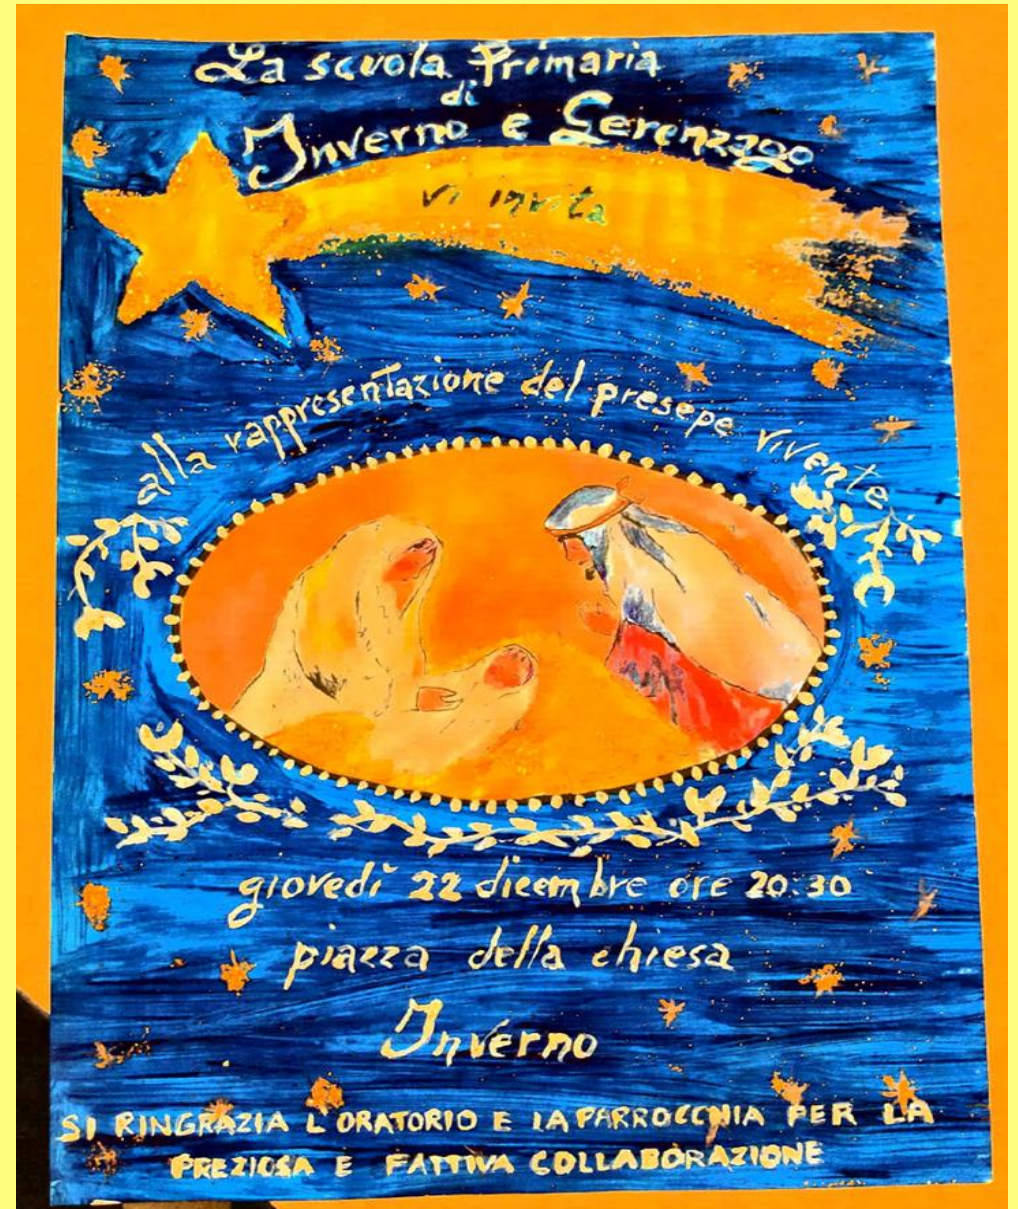 La scuola Primaria
di
Inverno e Gerenzago
vi invita
alla rappresentazione del presepe vivente
giovedì 22 dicembre ore 20:30
piazza della chiesa
Inverno
SI RINGRAZIA L'ORATORIO E LA PARROCCHIA PER LA
PREZIOSA E FATTIVA COLLABORAZIONE